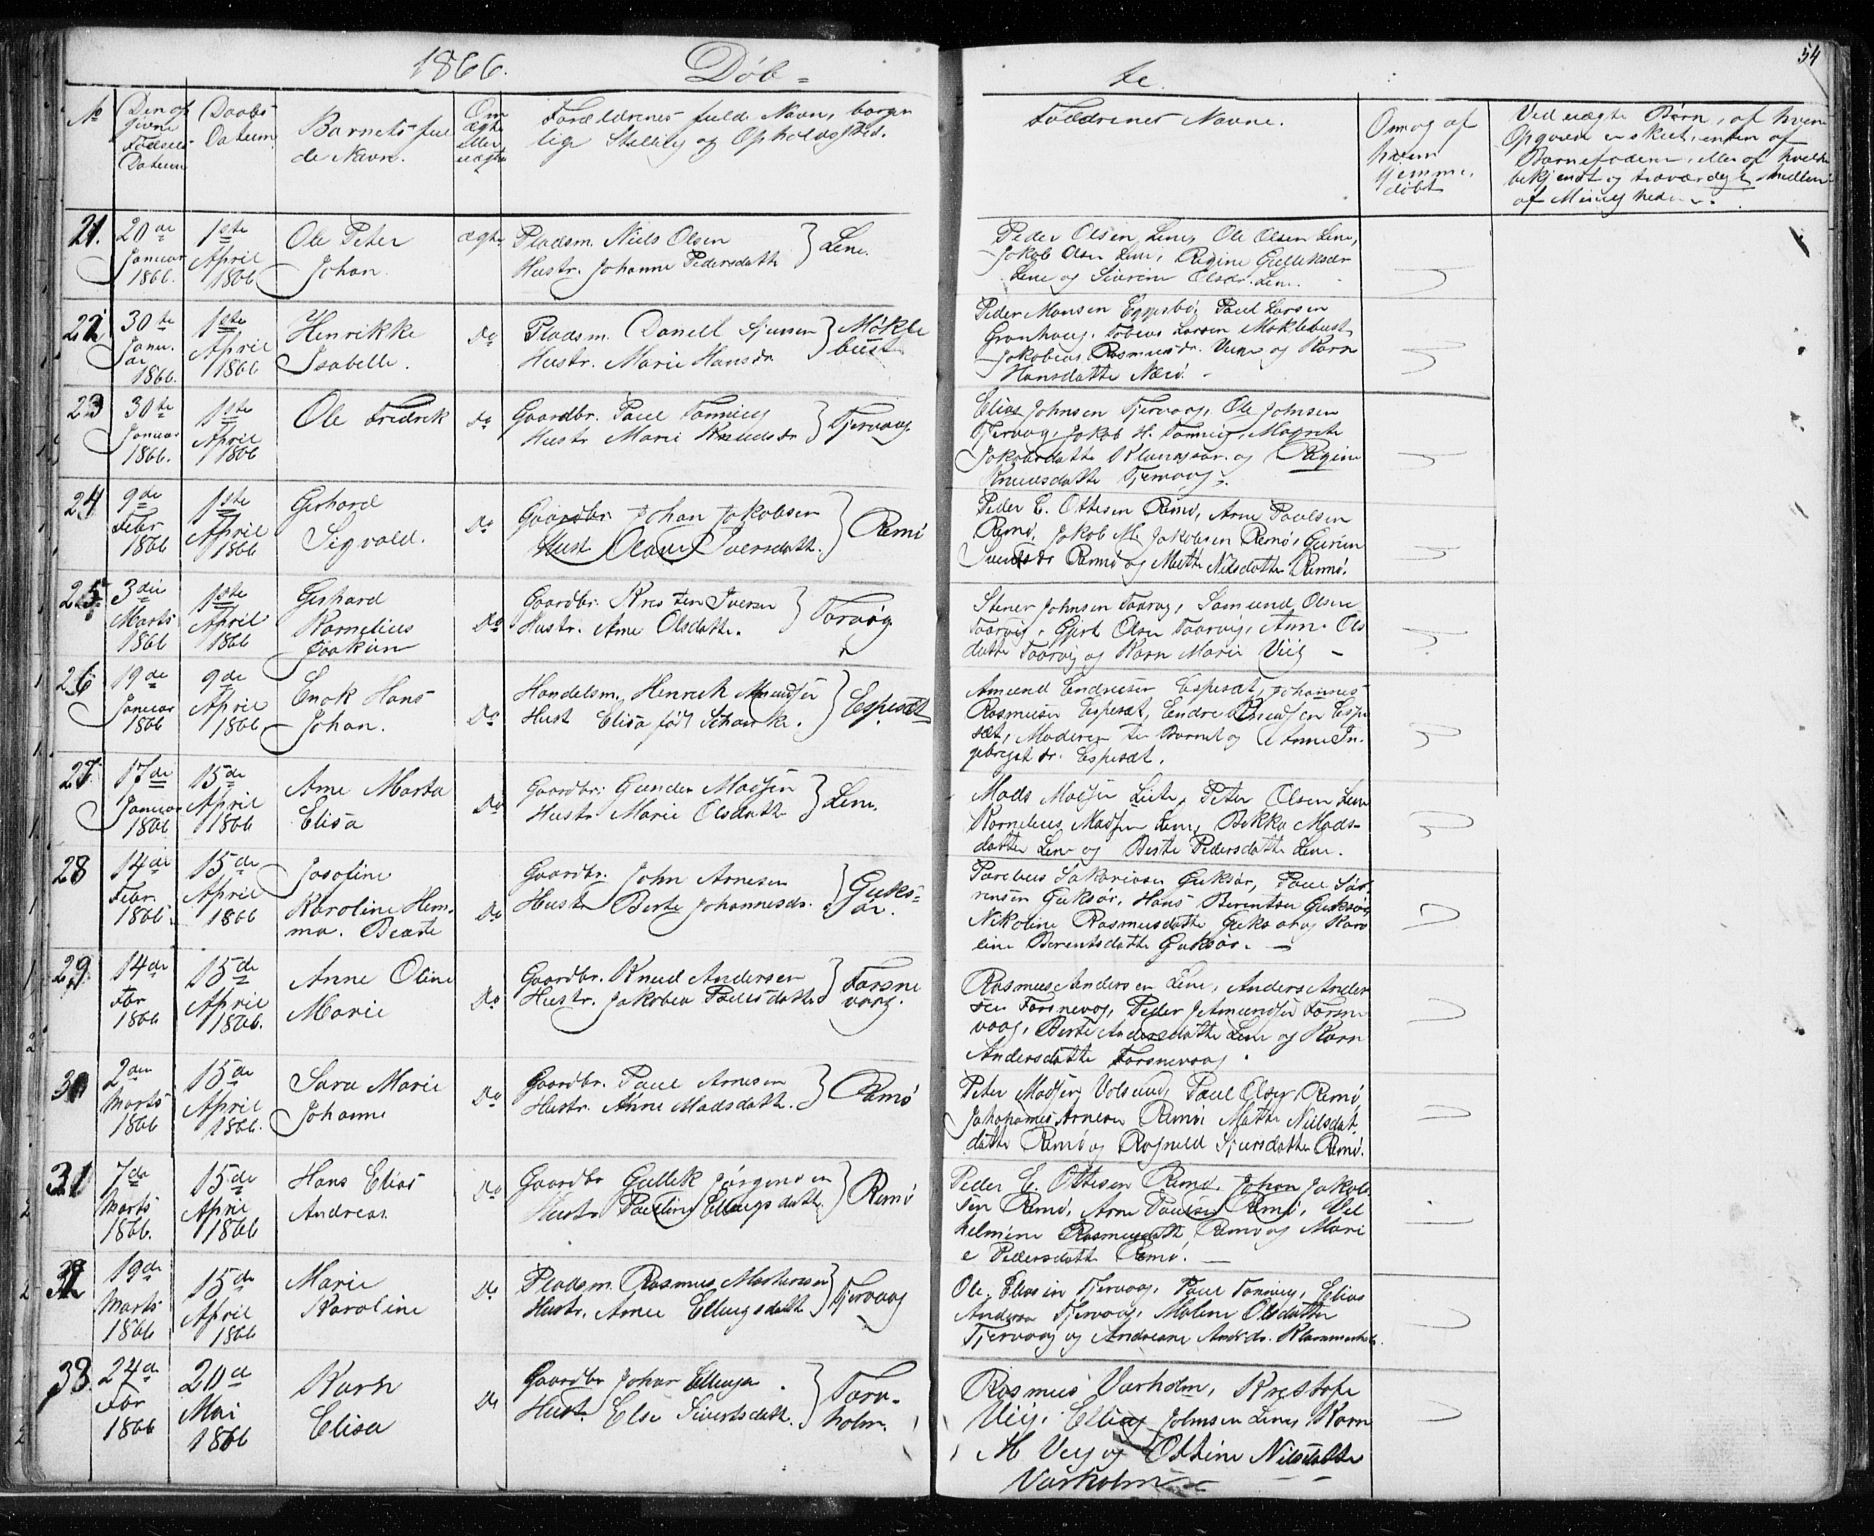 1866.
Døb=
te.
54
No
Den op
givne
Fødsels
Datum
Daabs
Datum
Barnets ful
de Navn.
Om
ægte
eller
uægte
Forældrenes fulde Navn, borger
lige Stilling og Opholdssted.
Faddrenes Navne.
Om og af
hvem
hjemme,
døbt
Ved uægte Børn, af hvem
Opgaven er skeet, enten af
Barnefaderen, eller af hvilke
bekjendt og troværdigt Medlem
af Menigheden.
21. 20de Januar 1866. 1ste April 1866
Ole Peter
Johan.
ægte
Pladsm. Niels Olsen
Hustr. Johanne Pedersdatte } Lene.
Peder Olsen Lene, Ole Olsen Lene,
Jakob Olsen Lene, Regine
Lene og Severine Olsdr. Lene.
22 30te Januar 1866. 1ste April 1866
Henrikke
Isabelle.
Do
Pladsm. Daniel Sjursen } Møkle
Hustr. Marie Hansdr bust
Peder Monsen Eggesbø, Paul Larsen
Gronhaug, Tobias Larsen Moklebust
Jakobine Rasmusdr. og Karn
Hansdatte Nærø.
23 30te Januar 1866. 1ste April 1866
Ole Fredrik
Do
Gaardbr. Paul
Hustr Marie Knudsdr } Tjervaag
Elias Johnsen Tjervaag, Ole Johnsen
Tjervaag, Jakob H. Magrete
Jakobsdatte og Regine
Knudsdatte Tjervaag.
24 9de Febr 1866 1ste April 1866
Gerhard
Sigvald.
Do
Gaardbr. Johan Jakobsen
Hust Olave Iversdatt. } Remø
Peder E. Ottesen Remø, Arne Paulsen
Remø, Jakob M. Jakobsen Remø, Gurine
Remø og Mette Nilsdatte Remø.
25 3die Marts 1866 1ste April 1866
Gerhard
Kornelius
Joakim
Do
Gaardbr. Kresten Iversen
Hustr. Ane Olsdatte. } Torvig
Stener Johnsen Taarvig, Samund Olsen
Taarvig, Gjert Olsen Taarvig, Ane Ols
datte Taarvig og Karn Marie Viig
26 19de Januar 1866 9de April 1866.
Enok Hans
Johan.
Do
Handelsm. Henrik Amundsen
Hust Elisa fød Schanke. } Espesæt
Amund Endresen Espesæt, Johannes
Rasmusen Espesæt, Endre Amundsen Espe
sæt, Moderen til Barnet og Anne In
gebrigtsdr. Espesæt.
27. 17de Januar 1866 15de April 1866
Ane Marta
Elisa
Do
Gaardbr. Gunder Madsen
Hustr Marie Olsdatte } Lene.
Mads Madsen Leite, Peter Olsen Lene
Kornelius Madsen Lene, Bekka Mads-
datter Lene og Berte Pedersdatte Lene.
28 14de Febr 1866. 15de April 1866
Josofine
Karoline Hem-
ma. Beate
Do
Gaardbr. John Arnesen
Hustr Berte Johannesdr. } Guks-
ør.
Parelius Sakariasen Guksør, Paul Sø
rensen Guksør, Hans Berentsen Guksør,
Nikoline Rasmusdatte Guksør og Karo
line Berentsdatte Guksør.
29. 14de Febr 1866 15de April 1866.
Anne Oline
Marie
Do
Gaardbr. Knud Andersen
Hustr. Jakobea Pedersdatte } Torsne
vaag.
Rasmus Andersen Lene, Anders Ander
sen Torsnevaag, Peder J Amundsen Torsne
vaag, Berte Andersdatte Lene og Karn
Andersdatte Torsnevaag.
30 2den Marts 1866 15de April 1866.
Sara Marie
Johanne
Do
Gaardbr. Paul Arnesen
Hustr. Anne Madsdatte. } Remø
Peter Madsen Volsund, Paul Olsen Remø,
Johannes Arnesen Remø, Matte Nilsdat.
datte Remø og Ragneld Sjursdatte Remø.
31 7de Marts 1866. 15de April 1866
Hans Elias
Andreas.
Do
Gaardbr Gullik Jørgensen
Hustr Pauline Ellingsdatte } Remø
Peder E. Ottesen Remø, Johan Jakob
sen Remø, Arne Paulsen Remø, Vil
helmine Rasmusdatte, Remø og Mari
e Pedersdatte Remø.
32 19de Marts 1866 15de April 1866
Marie
Karoline
Do
Pladsm. Rasmus Mortensen
Hustr. Anne Ellingsdatte } Tjervaag
Ole Eliassen Tjervaag, Paul Elias
Andersen Tjervaag, Malene Olsdatter
Tjervaag og Andreane Andsdr.
33. 24de Febr 1866 20de Mai 1866
Karn
Elisa
Do
Gaardbr Johan Ellingsen
Hustr. Else Sivertsdatte. } Torv-
holm.
Rasmus Varholm, Kristofe
Viig, Elling Johnsen Lene, Karn
M Veig og Ottine Nilsdatte
Varholm